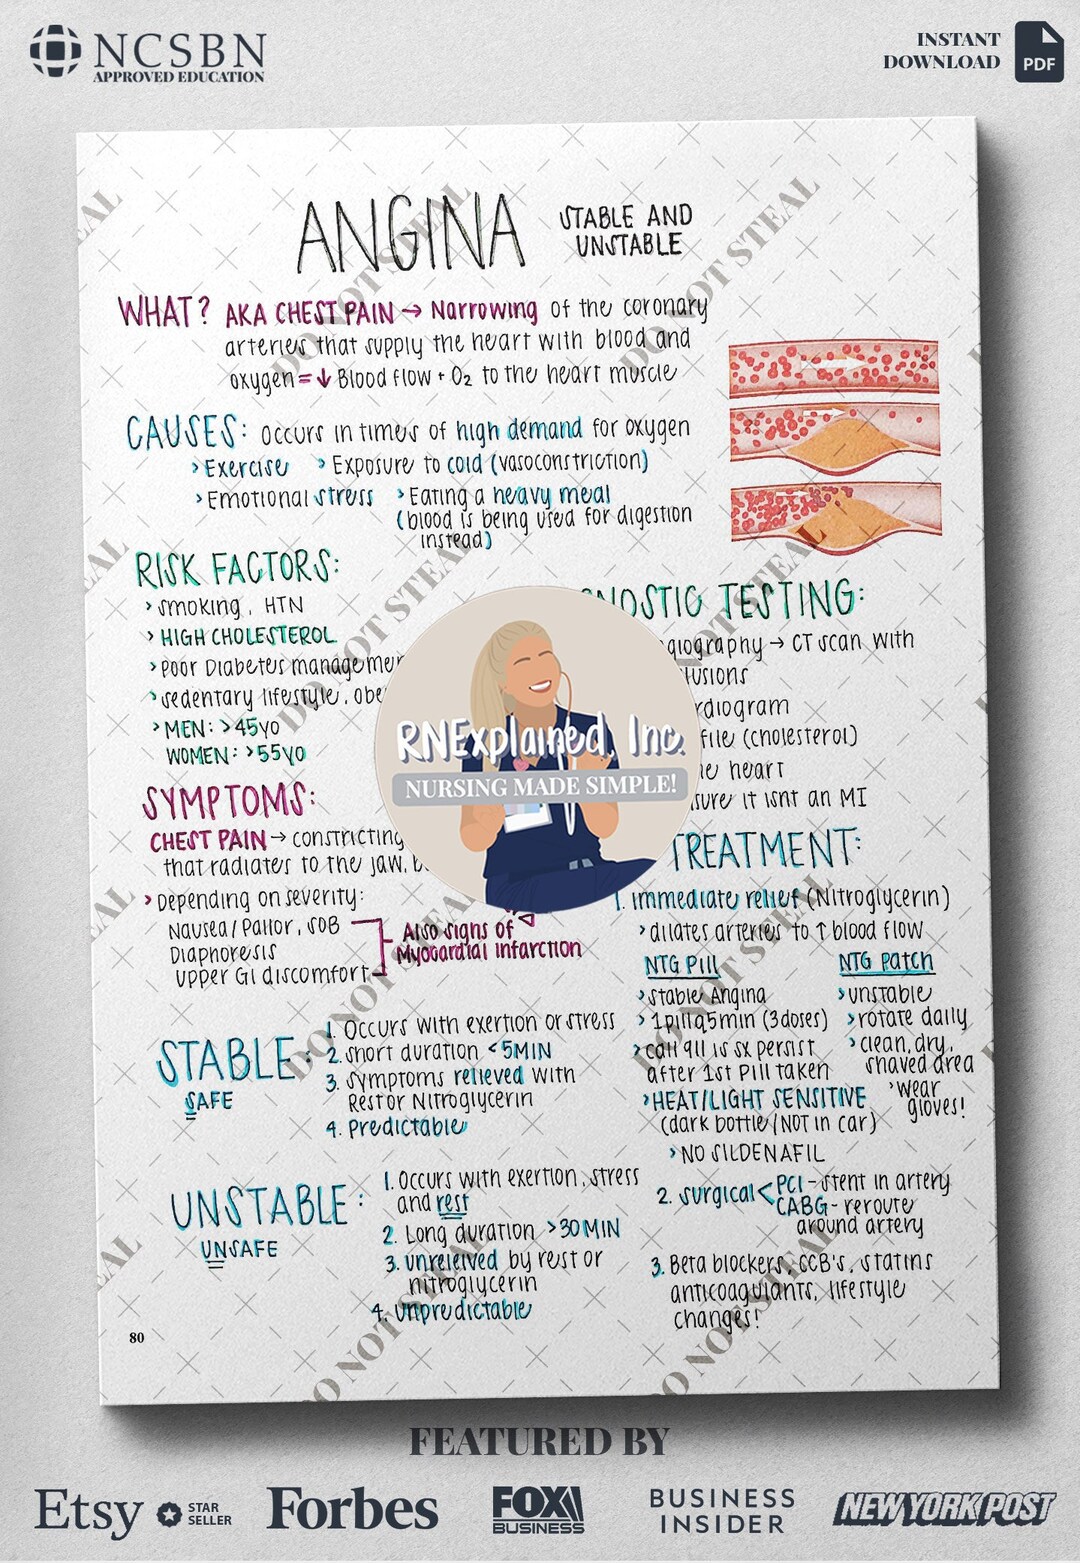 NCSBN
APPROVED EDUCATION
INSTANT
DOWNLOAD
PDF
ANGINA
STABLE AND
UNSTABLE
WHAT? AKA CHEST PAIN → Narrowing of the coronary
arteries that supply the heart with blood and
oxygen = ↓ Blood flow + O₂ to the heart muscle
CAUSES: occurs in times of high demand for oxygen
› Exercise › Exposure to cold (vasoconstriction)
› Emotional stress › Eating a heavy meal
(blood is being used for digestion
instead)
RISK FACTORS:
› smoking, HTN
› HIGH CHOLESTEROL
› Poor Diabetes
› sedentary lifestyle,
› MEN: >45yo
WOMEN: >55yo
SYMPTOMS:
CHEST PAIN → constricting
that radiates to the jaw,
› Depending on severity:
Nausea/Pallor, SOB
Diaphoresis
upper GI discomfort
Also signs of
Myocardial infarction
TESTING:
→ CT scan with
(cholesterol)
heart
it isnt an MI
RNExplained, Inc.
NURSING MADE SIMPLE!
TREATMENT:
1. immediate relief (Nitroglycerin)
› dilates arteries to ↑ blood flow
NTG Pill
› stable Angina
› 1 pill q5min (3 doses)
› call 911 is sx persist
after 1st pill taken
› HEAT/LIGHT SENSITIVE
(dark bottle/NOT in car)
› NO SILDENAFIL
NTG Patch
› unstable
› rotate daily
› clean, dry,
shaved area
› wear
gloves!
2. surgical < PCI - stent in artery
CABG - reroute
around artery
3. Beta blockers, CCB's, statins
anticoagulants, lifestyle
changes!
STABLE:
SAFE
1. Occurs with exertion or stress
2. short duration <5MIN
3. symptoms relieved with
Rest or Nitroglycerin
4. Predictable
UNSTABLE:
UNSAFE
1. Occurs with exertion, stress
and rest
2. Long duration >30MIN
3. unreleived by rest or
nitroglycerin
4. unpredictable
80
DO NOT STEAL
FEATURED BY
Etsy
STAR
SELLER
Forbes
FOX
BUSINESS
BUSINESS
INSIDER
NEW YORK POST